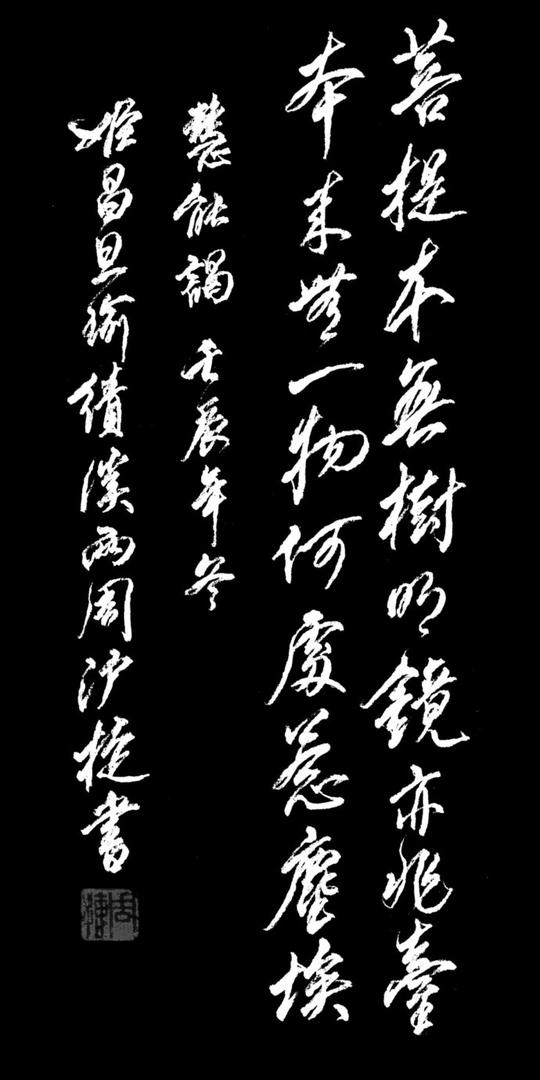 菩提本無樹明鏡亦非臺
本來無一物何處惹塵埃
慧能謁 壬辰年冬
姬昌旦瑜績溪兩周沙書